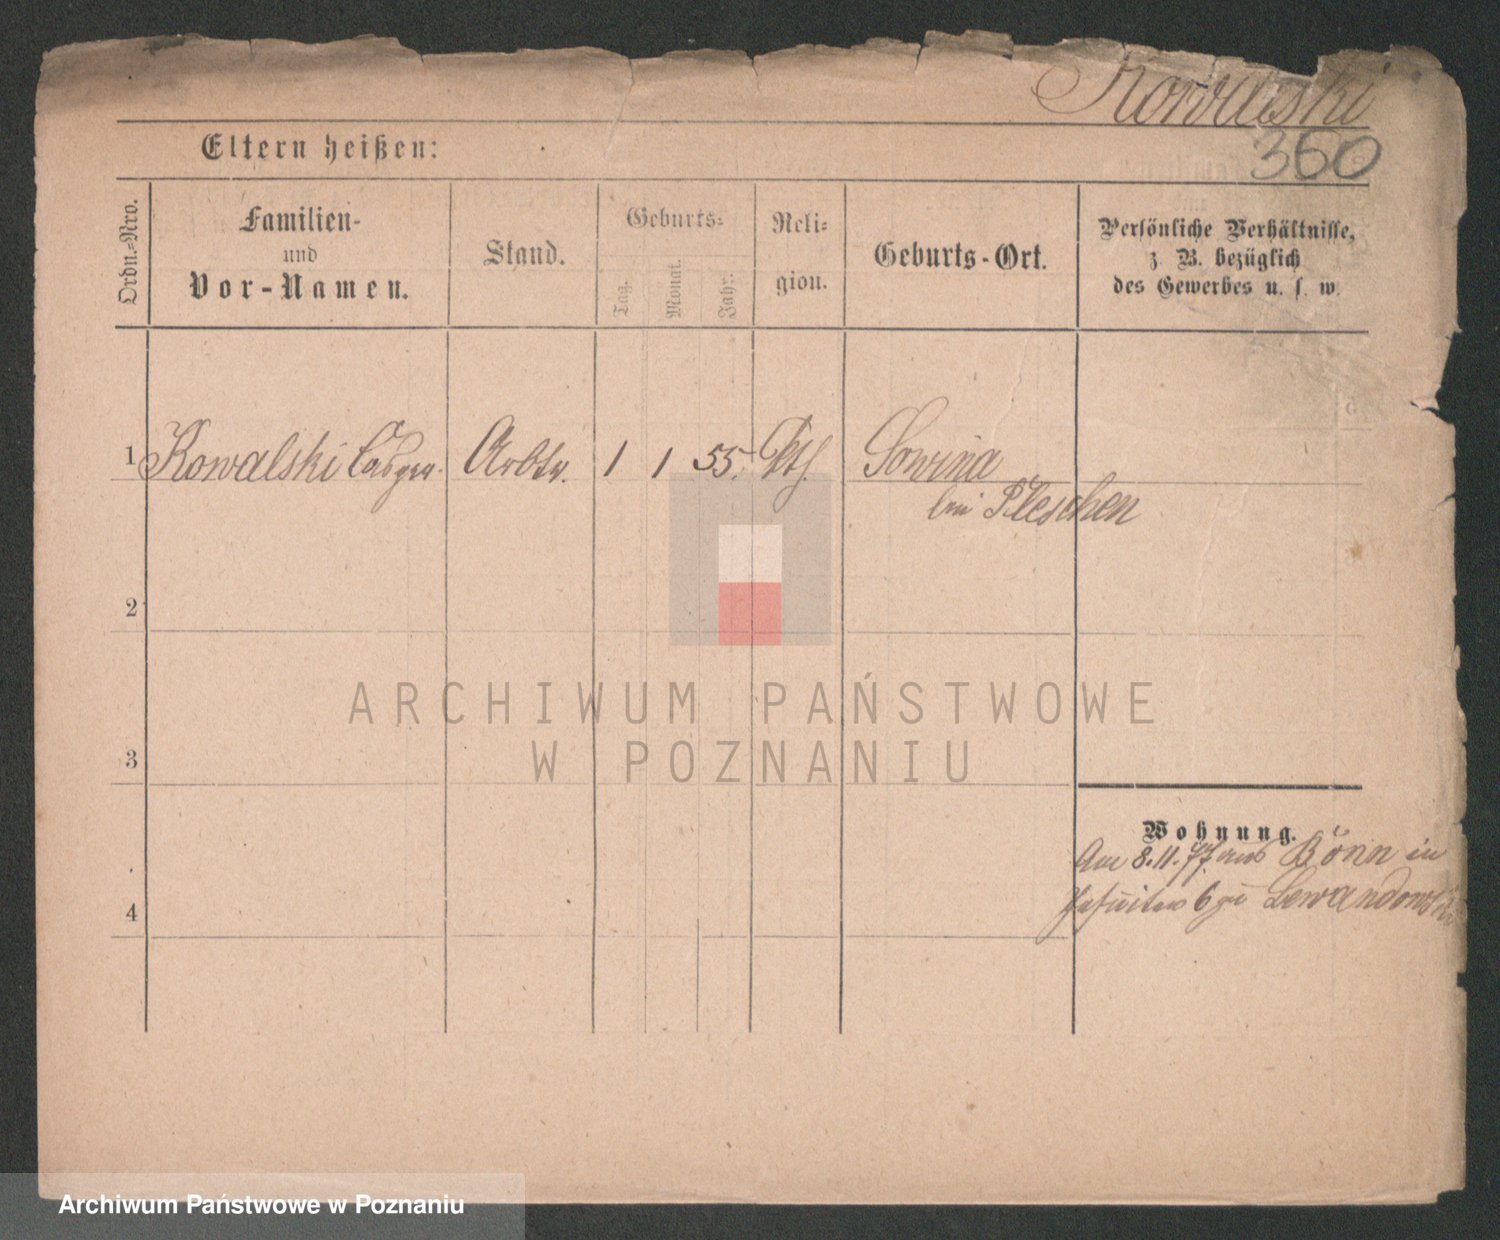 Kowalski
360
Eltern heißen:
Ordn.-Nro.
Familien-
und
Vor-Namen.
Stand.
Geburts-
Tag.
Monat.
Jahr.
Reli-
gion.
Geburts-Ort.
Persönliche Verhältnisse,
z. B. bezüglich
des Gewerbes u. s. w.
1 Kowalski Casper. Arbtr. 1 1 55. Kth. Sowina
bei Pleschen
2
3
4
Wohnung.
Am 8.11.77 aus Bönn in
Jesuitens 6 zu Lewandowski
ARCHIWUM PAŃSTWOWE
W POZNANIU
Archiwum Państwowe w Poznaniu